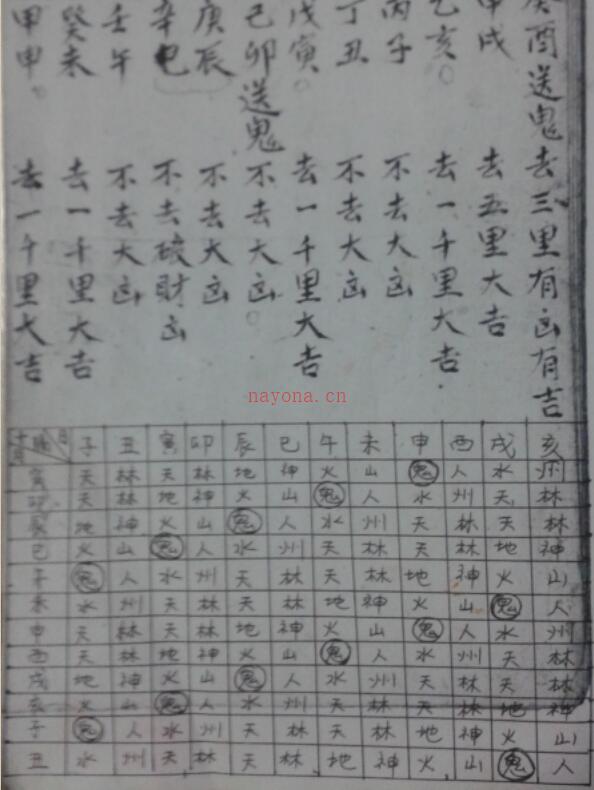 癸酉送鬼去三里有凶有吉
甲戌 去五里大吉
乙亥 去一千里大吉
丙子 不去大凶
丁丑 不去大凶
戊寅 去一千里大吉
己卯送鬼 不去大凶
庚辰 不去大凶
辛巳 不去破財凶
壬午 不去大凶
癸未 去一千里大吉
甲申 去一千里大吉
nayona.cn
子 丑 寅 卯 辰 巳 午 未 申 酉 戌 亥
寅 天 林 天 林 地 神 火 山 鬼 人 水 州
卯 天 林 地 神 火 山 鬼 人 水 州 天 林
辰 地 神 火 山 鬼 人 水 州 天 林 天 林
巳 火 山 鬼 人 水 州 天 林 天 林 地 神
午 鬼 人 水 州 天 林 天 林 地 神 火 山
未 水 州 天 林 天 林 地 神 火 山 鬼 人
申 天 林 天 林 地 神 火 山 鬼 人 水 州
酉 天 林 地 神 火 山 鬼 人 水 州 天 林
戌 地 神 火 山 鬼 人 水 州 天 林 天 林
亥 火 山 鬼 人 水 州 天 林 天 林 地 神
子 鬼 人 水 州 天 林 天 林 地 神 火 山
丑 水 州 天 林 天 林 地 神 火 山 鬼 人